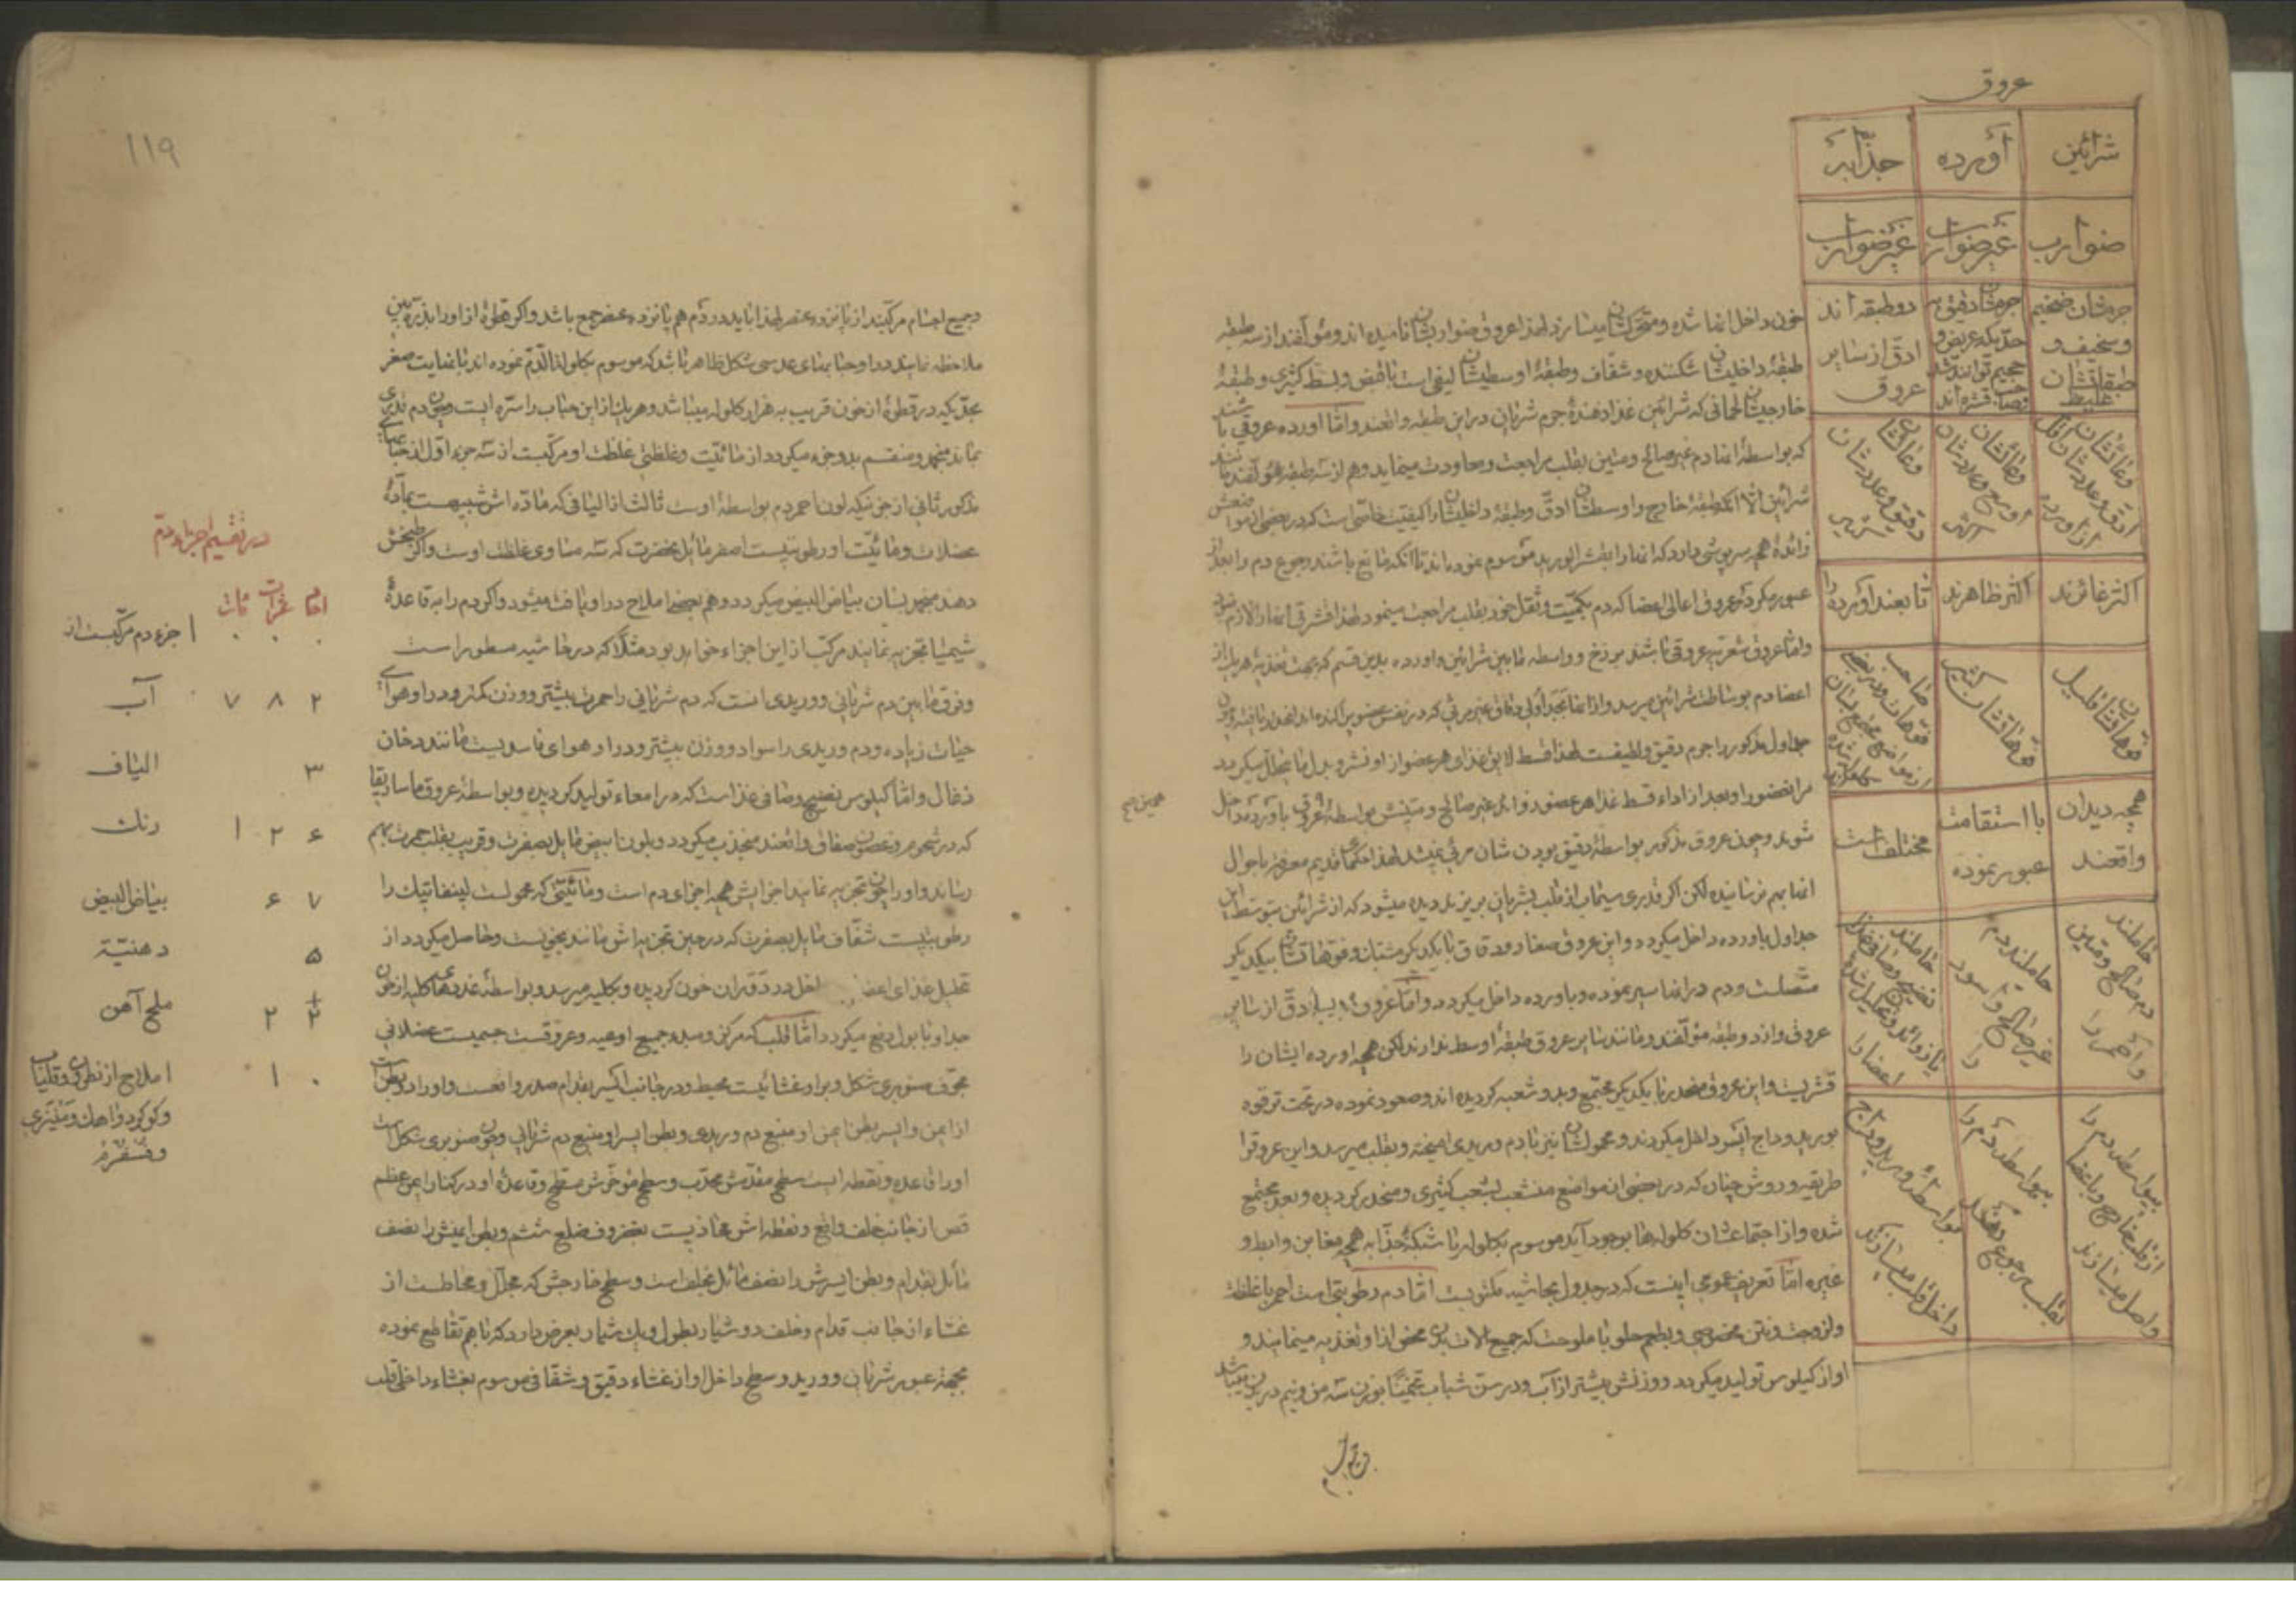 عروق
شرائین آورده جذابه
ضوارب غیر ضوارب غیر ضوارب
جرمشان ضخیم و سخیف و طبقاتشان غلیظ
جرمشان دقیق بحدیکه عریض و حجیم توانند شد وصاحب قشره‌اند
دو طبقه اند ادق از سایر عروق
وعائشان ادق وعددشان اقل از آورده
وعائشان اوسع وعددشان اکثر
وعائشان دقیق وعددشان کثیر
اکثر غائرند
اکثر ظاهرند
تابعند آورده را
فوهاتشان قلیل
فوهاتشان کثیر
صاحب فوهات ودر بعضی از مواضع مجتمع شده
همچه دیدان واقعند
با استقامت عبور نموده
مختلف است
حاملند دم صالح ومتین واحمر را
حاملند دم غیر صالح واسود را
حاملند نضیج وصافی غذا یا زوائد وتحلیل شده اعضا را
بیواسطه دم را از قلب بخارج وباعضا واصل میسازند
بیواسطه دم را بقلب رجوع میدهند
بواسطهٔ ورید وداج داخل قلب میسازند
خون داخل انها شده ومتحرکشان میسازد لهذا عروق ضواربشان نامیده اند ومؤلفند از سه طبقه
طبقهٔ داخلیشان شکننده وشفاف وطبقهٔ اوسطیشان لیفی است با قبض وبسط کثیری وطبقهٔ
خارجیشان لحمانی که شرائین غذا دهندهٔ جرم شریان در این طبقه واقعند واما اورده عروقی باشند
که بواسطهٔ انها دم غیر صالح ومتین بقلب مراجعت ومعاودت مینماید وهم از سه طبقه مؤلفند مانند
شرائین الا آنکه طبقهٔ خارج واوسطشان ادق وطبقهٔ داخلیشان را کیفیت خاصی است که در بعضی از مواضعش
زائدهٔ همچه سرپوشی دارد که انها را بقشر الورید موسوم نموده اند تا آنکه مانع باشند رجوع دم را بعد از
عبور مکرر درعروق اعالی اعضا که دم بکمیت وثقل خود بقلب مراجعت مینمود لهذا قشر فی انها را لازم نبود
واما عروق شعریه عروقی باشند برزخ وواسطه مابین شرائین واورده بدین قسم که بجهت تغذیهٔ هریک از
اعضا دم بوساطت شرائین میرسد واز انها بجداولی دقاق غیر مرئی که در نفس عضو پراکنده اند
جداول مذکور را جرم دقیق ولطیفست لهذا قسط لایق غذای هر عضو از او نشر وبدل ما یتحلل میکردد
مر انعضو را وبعد از اداء قسط غذا هر عضو زوائد غیر صالح ومتینش بواسطهٔ عروق باورده داخل
شوند وچون عروق مذکور بواسطهٔ دقیق بودن شان مرئی نمیشد لهذا حکمای قدیم معرفت باحوال
انها بهم نرسانیده لکن اکر قدری سیماب از قلب بشریان بریزند دیده میشود که از شرائین بتوسط این
جداول باورده داخل میکردد واین عروق صغار ودقاق با یکدیکر مشتبک وفوهاتشان بیکدیکر
متصلست ودم در انها سیر نموده وباورده داخل میکردد واما عروق جذابه ادق از سایر
عروق واز دو طبقه مؤلفند ومانند سایر عروق طبقهٔ اوسط ندارند لکن همچه اورده ایشان را
قشریست واین عروق منحدر با یکدیکر مجتمع وبدو شعبه کردیده اند وصعود نموده در تحت ترقوه
بورید وداج ایسر داخل میکردند ومحمولشان نیز با دم وریدی امیخته وبقلب میرسد واین عروقرا
طریقه وروش چنان که در بعضی از مواضع منشعب بشعب کثیری ومنحدر کردیده وبعد مجتمع
شده واز اجتماعشان کلوله ها بوجود آید موسوم بکلوله یا شبکهٔ جذابه همچه مغابن وابط و
غیره اما تعریف عمومی اینست که در جدول بحاشیه مکتوبست اما دم رطوبتی است احمر با غلظت
ولزوجت ونتن مخصوصی وبطعم حلو با ملوحت که جمیع الات بدن محض از او تغذیه مینمایند و
او از کیلوس تولید میکردد ووزنش بیشتر از آب ودر سن شباب تخمیناً بوزن سه من ونیم در بدن میباشد
وجمیع
119
وجمیع اجسام مرکبند از پانزده عنصر لهذا باید در دم هم پانزده عنصر جمع باشد واکر قطرهٔ از او را بذره بین
ملاحظه نمایند در او حبابهای عدسی شکل ظاهر باشد که موسوم بکلوله الدم نموده اند با نهایت صغر
بحدیکه در قطرهٔ از خون قریب به هزار کلوله میباشد وهر یک از این حباب را ستره ایست وچون دم قدری
بماند منجمد ومنقسم بدو جزء میکردد از مائیت وغلظتی غلظت او مرکبست از سه جزء اول از حبابهای
مذکور ثانی از جزئیکه لون احمر دم بواسطهٔ اوست ثالثا از الیافی که ماده اش شبیهست بمادهٔ
عضلات ومائیت او رطوبتیست اصفر مائل بخضرت که سه مساوی غلظت اوست واکر طبخش
دهند منجمد بسان بیاض البیض میکردد وهم بعضی املاح در او یافت میشود واکر دم را به قاعدهٔ
شیمیا تجزیه نمایند مرکب از این اجزاء خواهد بود مثلا که در حاشیه مسطور است
وفرق مابین دم شریانی ووریدی انست که دم شریانی را حمرت بیشتر ووزن کمتر ودر او هوای
حیات زیاده ودم وریدی را سواد ووزن بیشتر ودر او هوای فاسدیست مانند دخان
ذغال واما کیلوس نضیج وصافی غذا است که در امعاء تولید کردیده وبواسطهٔ عروق ماساریقا
که در شحوم وغصون صفاق واقعند منجذب میکردد وبلون ابیض مایل بصفرت وقریب بقلب حمرت بهم
رساند واورا چون تجزیه نمایند اجزایش همچه اجزای دم است ومائیتی که محمولست لینفاتیک را
رطوبتیست شفاف مایل بصفرت که در حین تجزیه اش مانند بخونست وحاصل میکردد از
تحلیل غذای اعضا داخل در دوران خون کردیده وبکلیه میرسد وبواسطهٔ غددهای کلیه از خون
جدا وبا بول دفع میکردد اما قلب که مرکز ومبدء جمیع اوعیه وعروقست جسمیست عضلانی
مجوف صنوبری شکل وبر او غشائیست محیط ودر جانب ایسر بقدام صدر واقعست واورا دو بطن است
از ایمن وایسر بطن ایمن او منبع دم وریدی وبطن ایسر او منبع دم شریانی وچون صنوبری شکل است
اورا قاعده ونقطه ایست سطح مقدمش محدب وسطح مؤخرش مسطح وقاعدهٔ او در کنار ایمن عظم
قص از جانب خلف واقع ونقطه اش محاذیست بغضروف ضلع ششم وبطن ایمنش را نصف
مائل بقدام وبطن ایسرش را نصف مائل بخلف است وسطح خارجش که مجلل ومحاطست از
غشاء از جانب قدام وخلف دو شیار بطول ویک شیار بعرض دارد که با هم تقاطع نموده
بجهة عبور شریان وورید وسطح داخل او از غشاء دقیق وشفافی موسوم بغشاء داخلی قلب
در تقسیم اجزاء دم
احاد عشرات مات
۱ جزء دم مرکبست از
۲ ۸ ۷ آب
۳ الیاف
۶ ۲ ۱ رنک
۷ ۶ بیاض البیض
۵ دهنیة
۲ ۲ ملح آهن
۰ ۱ املاح از نطرون وقلیاب
وکوکرد واهک ومنیزی